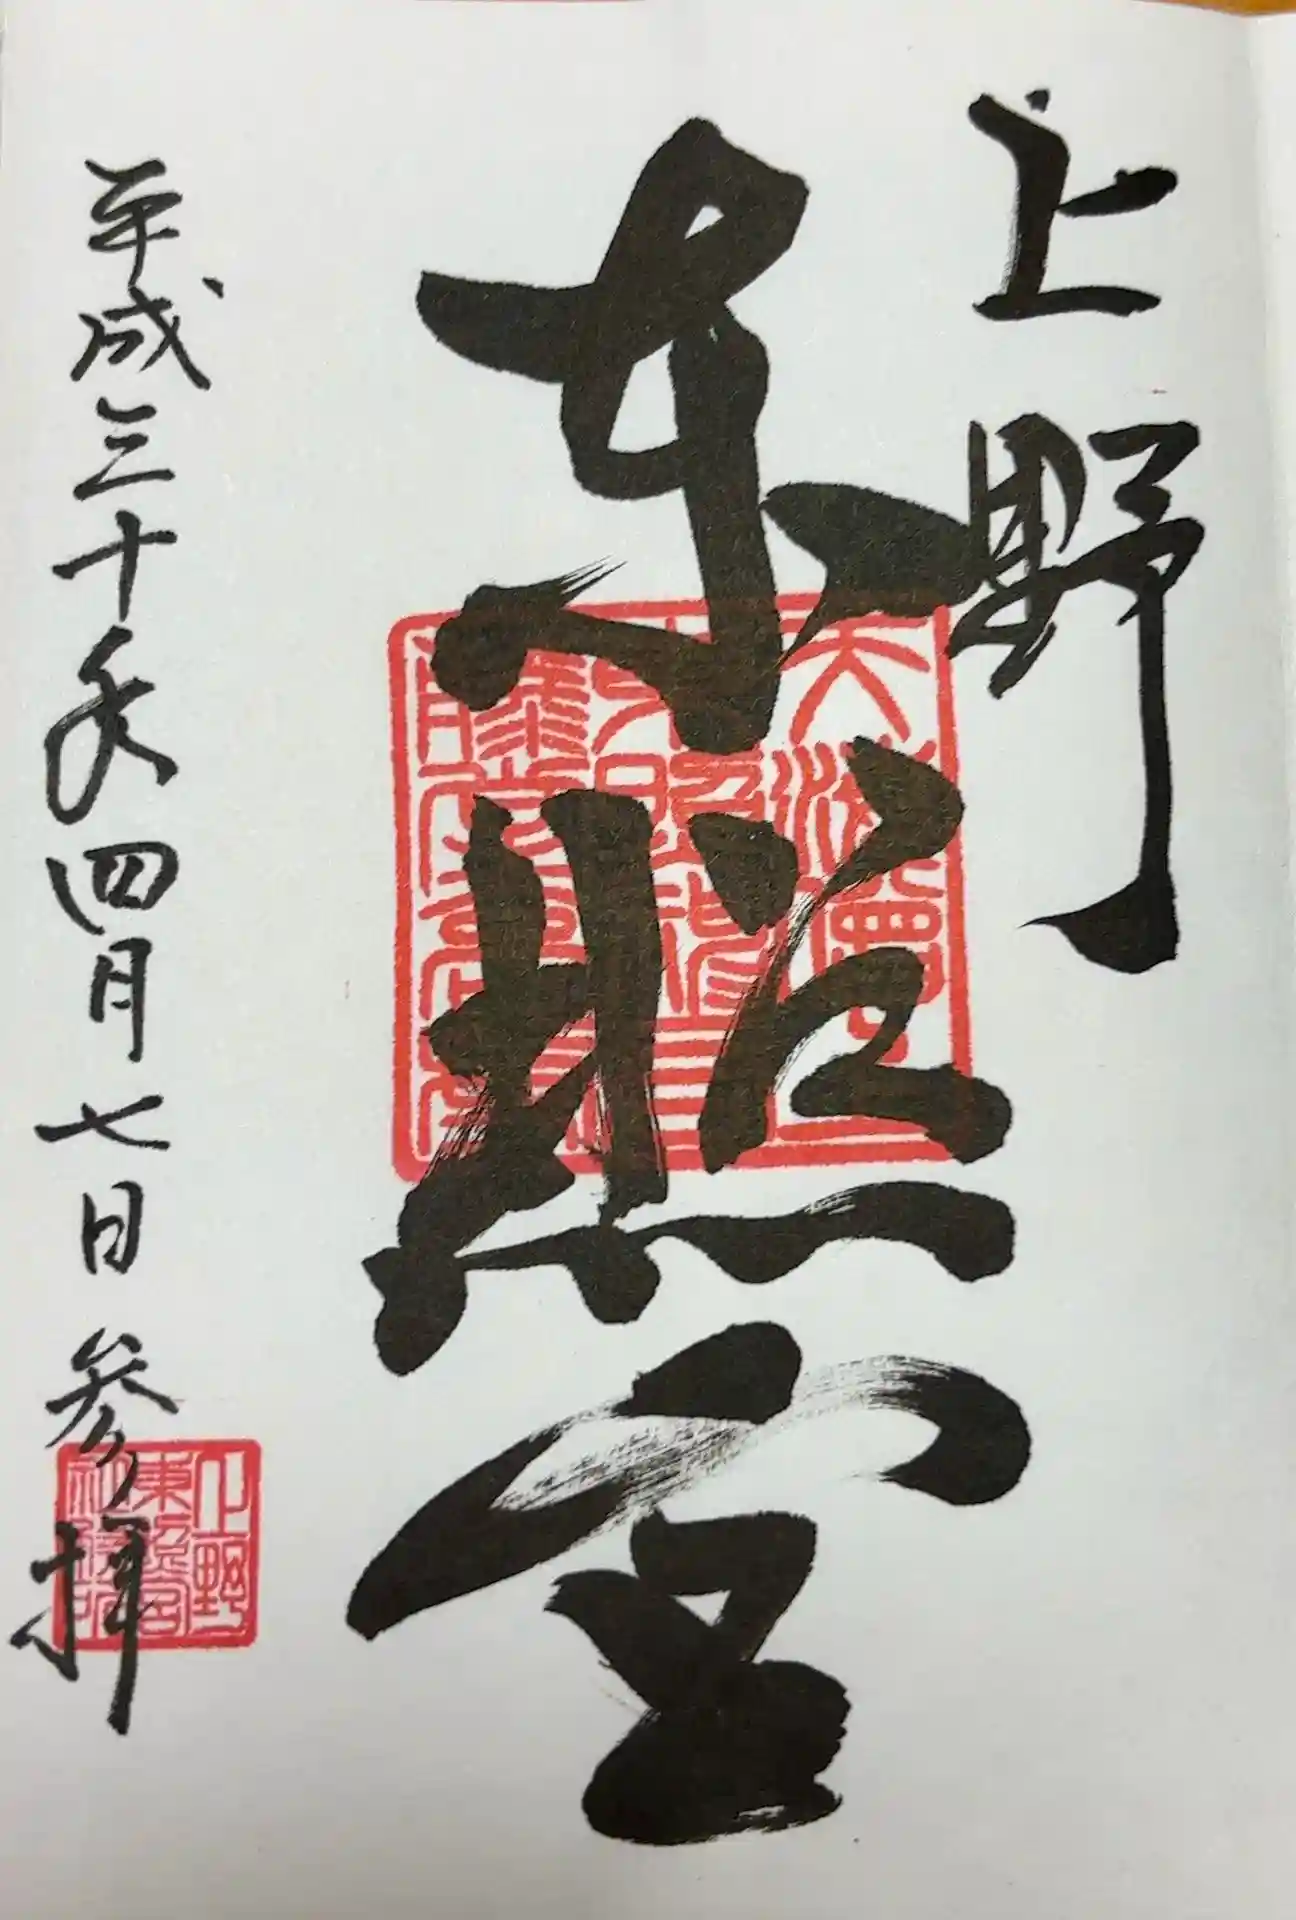 上野
東照宮
平成三十年四月七日参拝
上野
東照宮
社務所